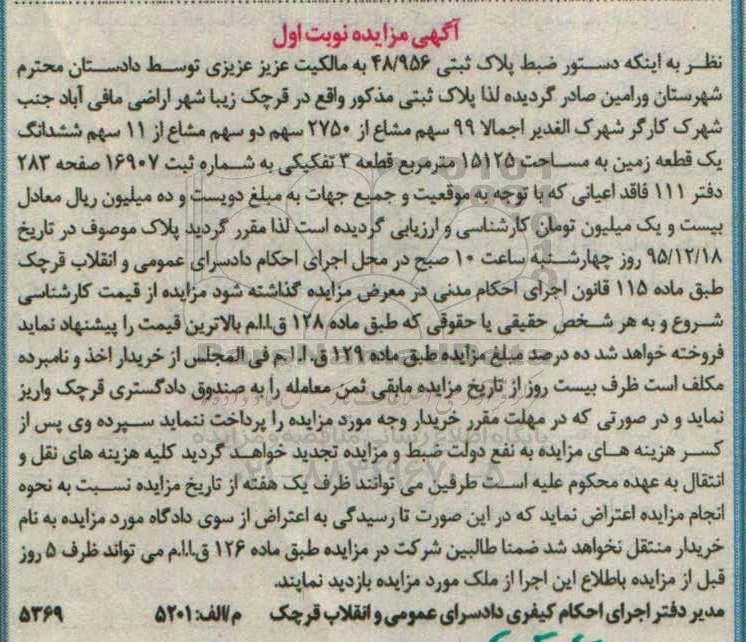 آگهی مزایده نوبت اول
نظر به اینکه دستور ضبط پلاک ثبتی ۴۸/۹۵۶ به مالکیت عزیز عزیزی توسط دادستان محترم
شهرستان ورامین صادر گردیده لذا پلاک ثبتی مذکور واقع در قرچک زیبا شهر اراضی مافی آباد جنب
شهرک کارگر شهرک الغدیر اجمالا ۹۹ سهم مشاع از ۲۷۵۰ سهم دو سهم مشاع از ۱۱ سهم ششدانگ
یک قطعه زمین به مساحت ۱۵۱۲۵ مترمربع قطعه ۳ تفکیکی به شماره ثبت ۱۶۹۰۷ صفحه ۲۸۳
دفتر ۱۱۱ فاقد اعیانی که با توجه به موقعیت و جمیع جهات به مبلغ دویست و ده میلیون ریال معادل
بیست و یک میلیون تومان کارشناسی و ارزیابی گردیده است لذا مقرر گردید پلاک موصوف در تاریخ
۹۵/۱۲/۱۸ روز چهارشنبه ساعت ۱۰ صبح در محل اجرای احکام دادسرای عمومی و انقلاب قرچک
طبق ماده ۱۱۵ قانون اجرای احکام مدنی در معرض مزایده گذاشته شود مزایده از قیمت کارشناسی
شروع و به هر شخص حقیقی یا حقوقی که طبق ماده ۱۲۸ ق.ا.ا.م بالاترین قیمت را پیشنهاد نماید
فروخته خواهد شد ده درصد مبلغ مزایده طبق ماده ۱۲۹ ق.ا.ا.م فی المجلس از خریدار اخذ و نامبرده
مکلف است ظرف بیست روز از تاریخ مزایده مابقی ثمن معامله را به صندوق دادگستری قرچک واریز
نماید و در صورتی که در مهلت مقرر خریدار وجه مورد مزایده را پرداخت ننماید سپرده وی پس از
کسر هزینه های مزایده به نفع دولت ضبط و مزایده تجدید خواهد گردید کلیه هزینه های نقل و
انتقال به عهده محکوم علیه است طرفین می توانند ظرف یک هفته از تاریخ مزایده نسبت به نحوه
انجام مزایده اعتراض نماید که در این صورت تا رسیدگی به اعتراض از سوی دادگاه مورد مزایده به نام
خریدار منتقل نخواهد شد ضمنا طالبین شرکت در مزایده طبق ماده ۱۲۶ ق.ا.ا.م می تواند ظرف ۵ روز
قبل از مزایده باطلاع این اجرا از ملک مورد مزایده بازدید نمایند.
مدیر دفتر اجرای احکام کیفری دادسرای عمومی و انقلاب قرچک م/الف: ۵۲۰۱ ۵۳۶۹